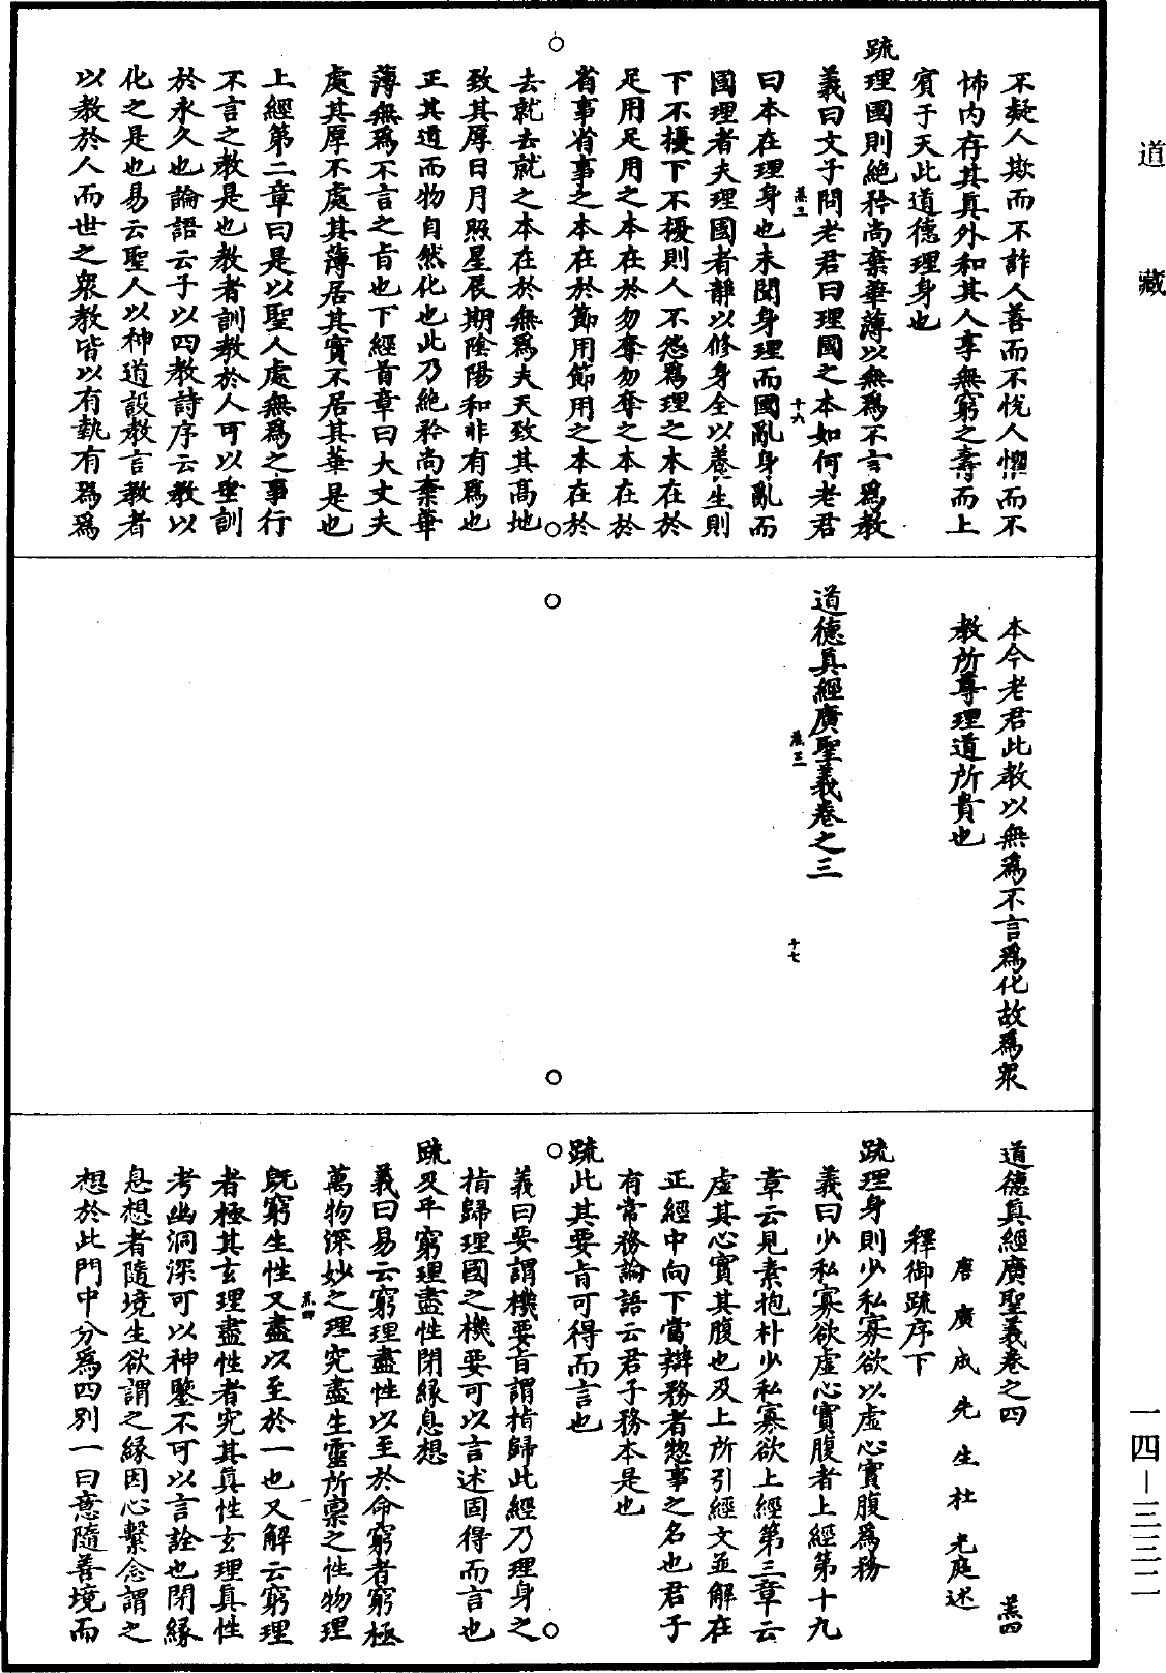 道藏
不疑人欺而不詐人善而不悅人懼而不
怖內存其真外和其人享無窮之壽而上
賓于天此道德理身也
疏理國則絕矜尚棄華薄以無為不言為教
義曰文子問老君曰理國之本如何老君
曰本在理身也未聞身理而國亂身亂而
國理者夫理國者靜以修身全以養生則
下不擾下不擾則人不怨為理之本在於
足用足用之本在於勿奪勿奪之本在於
省事省事之本在於節用節用之本在於
去就去就之本在於無為夫天致其高地
致其厚日月照星辰期陰陽和非有為也
正其道而物自然化也此乃絕矜尚棄華
薄無為不言之旨也下經首章曰大丈夫
處其厚不處其薄居其實不居其華是也
上經第二章曰是以聖人處無為之事行
不言之教是也教者訓教於人可以垂訓
於永久也論語云子以四教詩序云教以
化之是也易云聖人以神道設教言教者
以教於人而世之眾教皆以有執有為為
本今老君此教以無為不言為化故為眾
教所尊理道所貴也
道德真經廣聖義卷之三
十六
十七
道德真經廣聖義卷之四
唐廣成先生杜光庭述
釋御疏序下
疏理身則少私寡欲以虛心實腹為務
義曰少私寡欲虛心實腹者上經第十九
章云見素抱朴少私寡欲上經第三章云
虛其心實其腹也及上所引經文並解在
正經中向下當辯務者惣事之名也君子
有常務論語云君子務本是也
疏此其要旨可得而言也
義曰要謂機要旨謂指歸此經乃理身之
指歸理國之機要可以言述固得而言也
疏及乎窮理盡性閉緣息想
義曰易云窮理盡性以至於命窮者窮極
萬物深妙之理究盡生靈所稟之性物理
既窮生性又盡以至於一也又解云窮理
者極其玄理盡性者究其真性玄理真性
考幽洞深可以神鑒不可以言詮也閉緣
息想者隨境生欲謂之緣因心繫念謂之
想於此門中分為四別一曰意隨善境而
一四－三三二